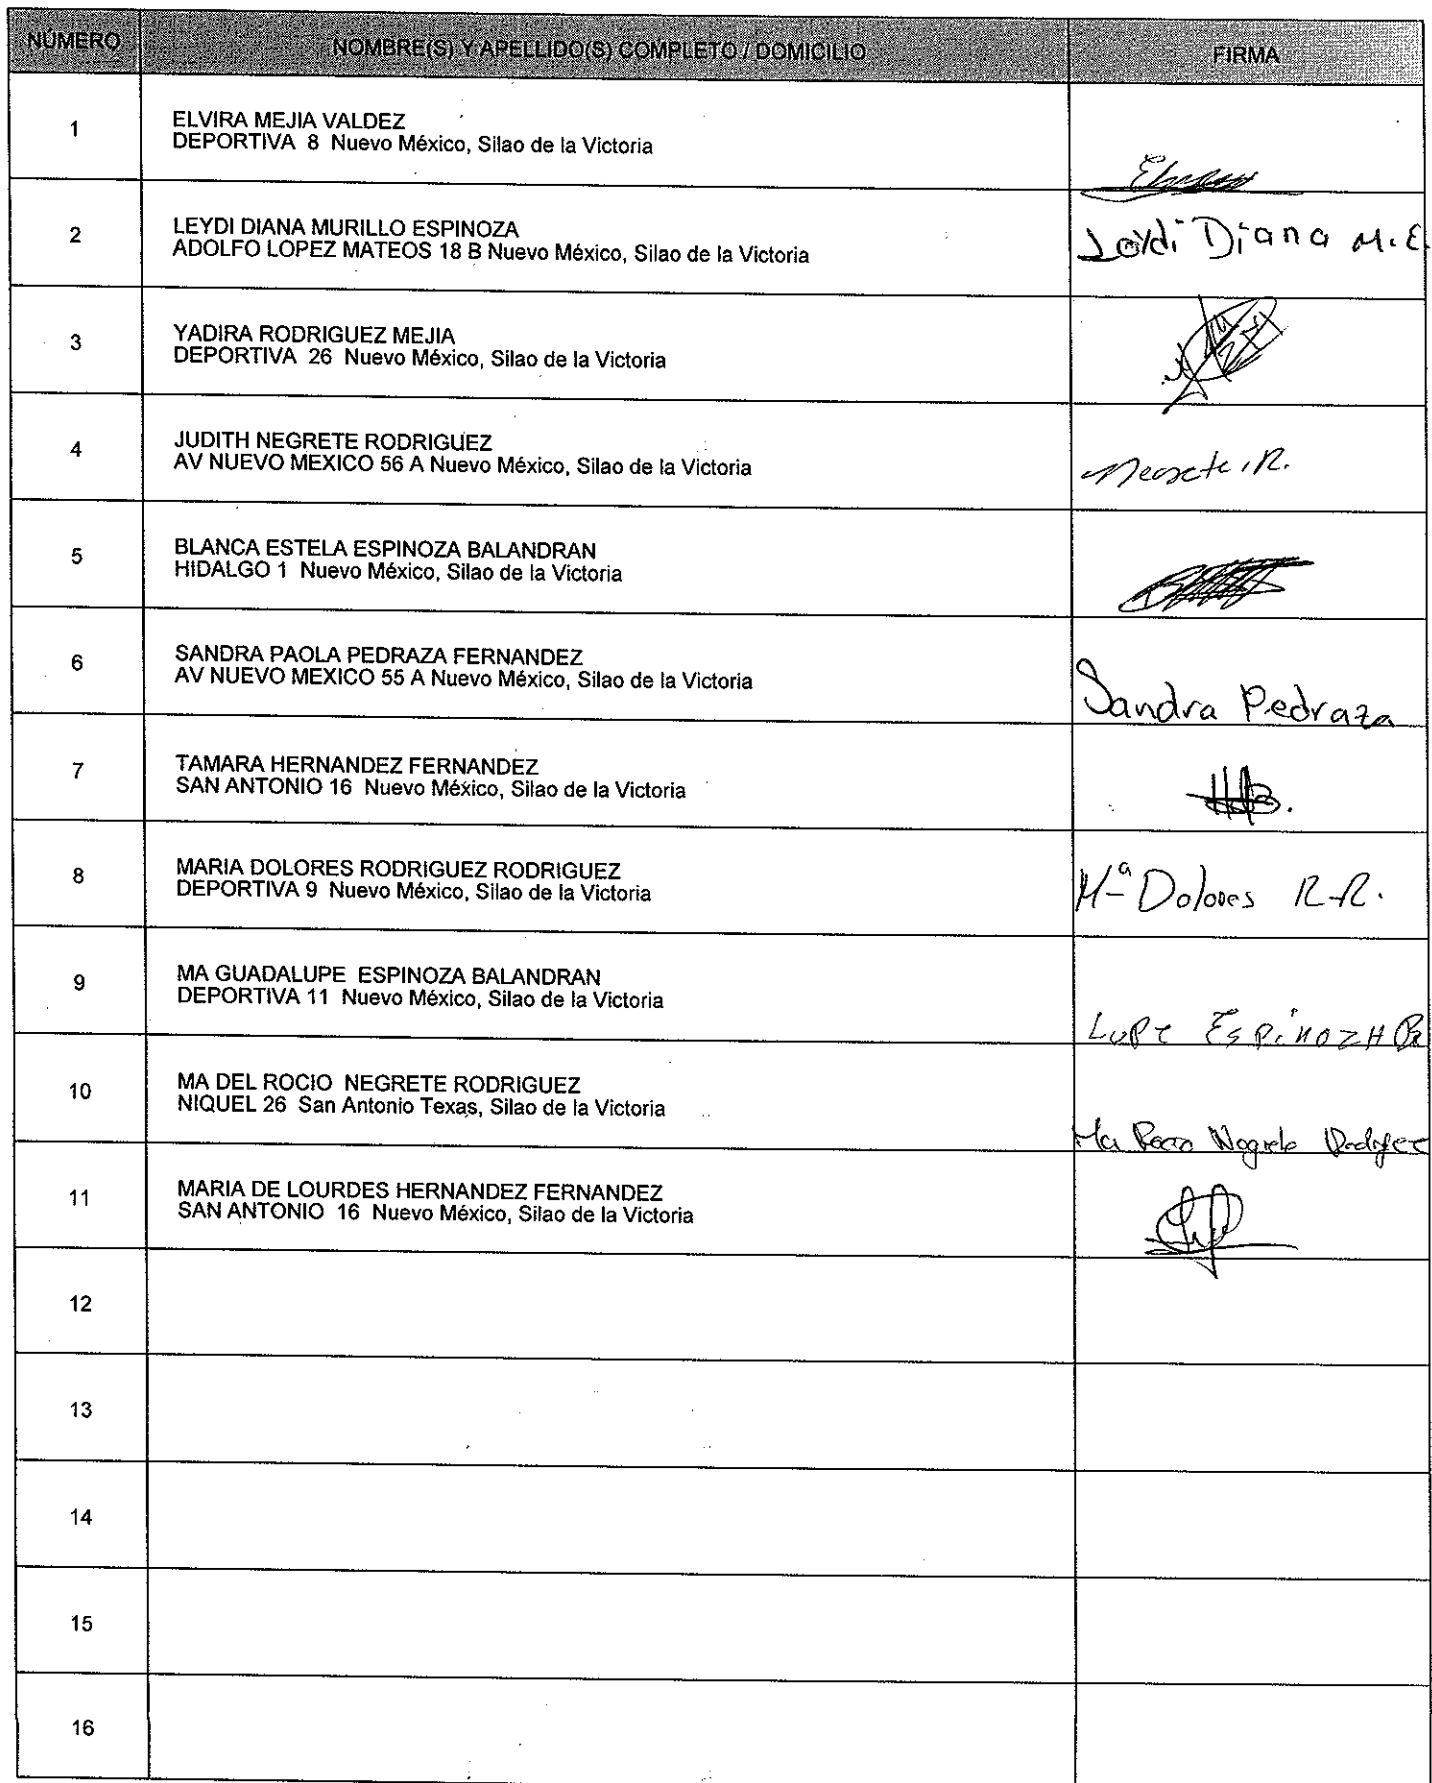 NÚMERO NOMBRE(S) Y APELLIDO(S) COMPLETO / DOMICILIO FIRMA
1 ELVIRA MEJIA VALDEZ
DEPORTIVA 8 Nuevo México, Silao de la Victoria
2 LEYDI DIANA MURILLO ESPINOZA
ADOLFO LOPEZ MATEOS 18 B Nuevo México, Silao de la Victoria
Leydi Diana M.E
3 YADIRA RODRIGUEZ MEJIA
DEPORTIVA 26 Nuevo México, Silao de la Victoria
4 JUDITH NEGRETE RODRIGUEZ
AV NUEVO MEXICO 56 A Nuevo México, Silao de la Victoria
Negrete R.
5 BLANCA ESTELA ESPINOZA BALANDRAN
HIDALGO 1 Nuevo México, Silao de la Victoria
6 SANDRA PAOLA PEDRAZA FERNANDEZ
AV NUEVO MEXICO 55 A Nuevo México, Silao de la Victoria
Sandra Pedraza
7 TAMARA HERNANDEZ FERNANDEZ
SAN ANTONIO 16 Nuevo México, Silao de la Victoria
8 MARIA DOLORES RODRIGUEZ RODRIGUEZ
DEPORTIVA 9 Nuevo México, Silao de la Victoria
Mª Dolores R.R.
9 MA GUADALUPE ESPINOZA BALANDRAN
DEPORTIVA 11 Nuevo México, Silao de la Victoria
LUPE ESPINOZA B
10 MA DEL ROCIO NEGRETE RODRIGUEZ
NIQUEL 26 San Antonio Texas, Silao de la Victoria
Ma Rocio Negrete Rodriguez
11 MARIA DE LOURDES HERNANDEZ FERNANDEZ
SAN ANTONIO 16 Nuevo México, Silao de la Victoria
12
13
14
15
16